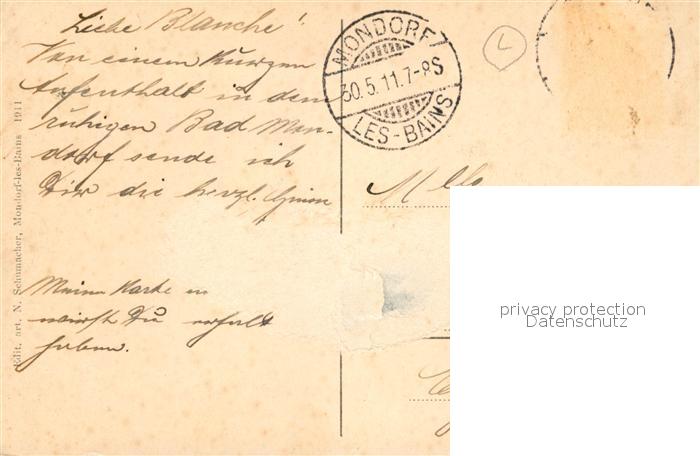 Liebe Blanche!
Von einem kurzen
Aufenthalt in dem
ruhigen Bad Mon-
dorf sende ich
Dir die herzl.
Meine Karte
wirst Du erhalt
haben.
Edit. art. N. Schumacher, Mondorf-les-Bains 1911
MONDORF
30.5.11.7-8S
LES-BAINS
L
Mlle
privacy protection
Datenschutz